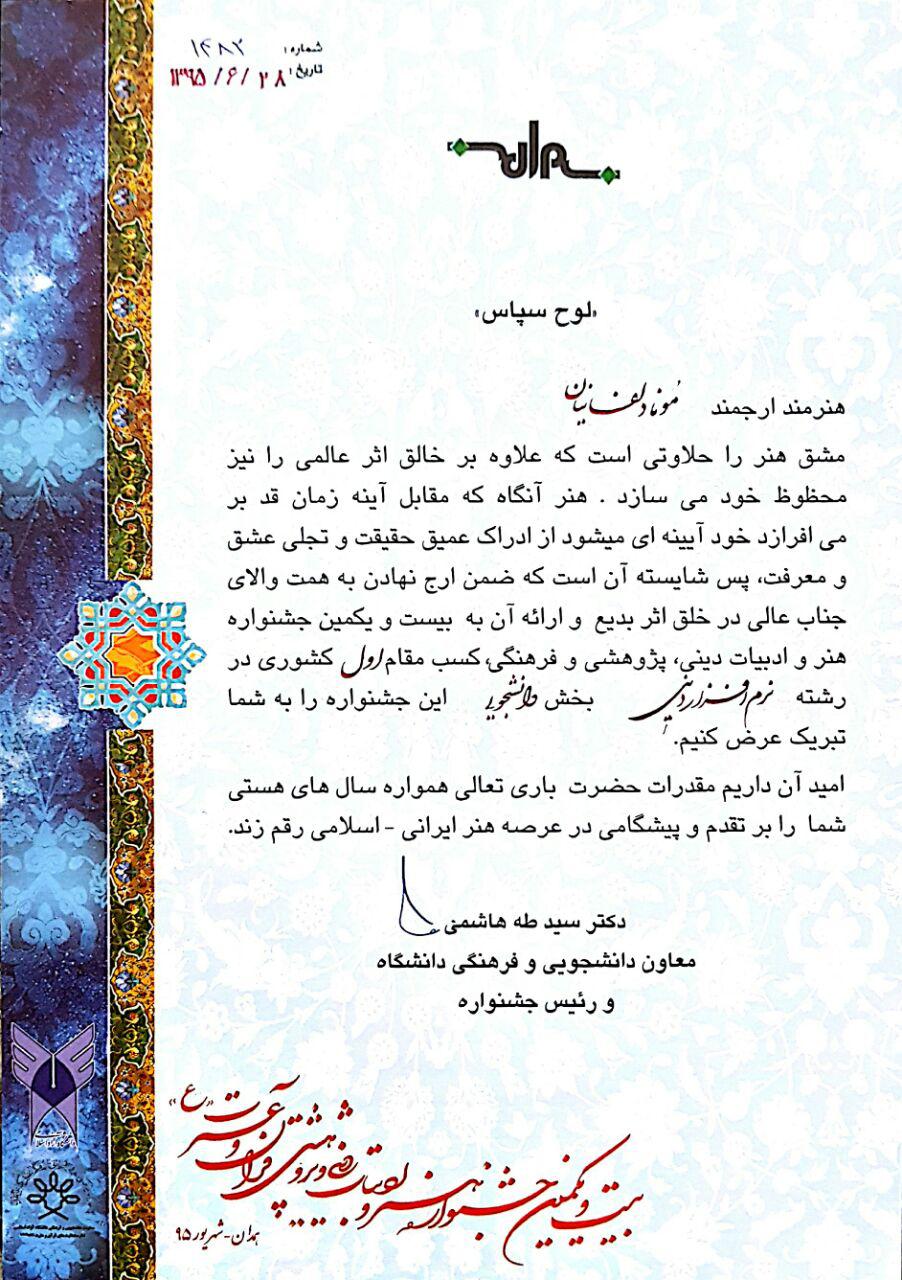 شماره: ۱۴۸۲
تاریخ: ۱۳۹۵/۶/۲۸
«لوح سپاس»
هنرمند ارجمند مونا دلفانیان
مشق هنر را حلاوتی است که علاوه بر خالق اثر عالمی را نیز
محظوظ خود می سازد . هنر آنگاه که مقابل آینه زمان قد بر
می افرازد خود آیینه ای میشود از ادراک عمیق حقیقت و تجلی عشق
و معرفت، پس شایسته آن است که ضمن ارج نهادن به همت والای
جناب عالی در خلق اثر بدیع و ارائه آن به بیست و یکمین جشنواره
هنر و ادبیات دینی، پژوهشی و فرهنگی، کسب مقام اول کشوری در
رشته نرم افزار دینی بخش دانشجویی این جشنواره را به شما
تبریک عرض کنیم.
امید آن داریم مقدرات حضرت باری تعالی همواره سال های هستی
شما را بر تقدم و پیشگامی در عرصه هنر ایرانی - اسلامی رقم زند.
دکتر سید طه هاشمی
معاون دانشجویی و فرهنگی دانشگاه
و رئیس جشنواره
بیست و یکمین جشنواره هنر و ادبیات دینی و پژوهشی قرآن و عترت «ع»
همدان - شهریور ۹۵